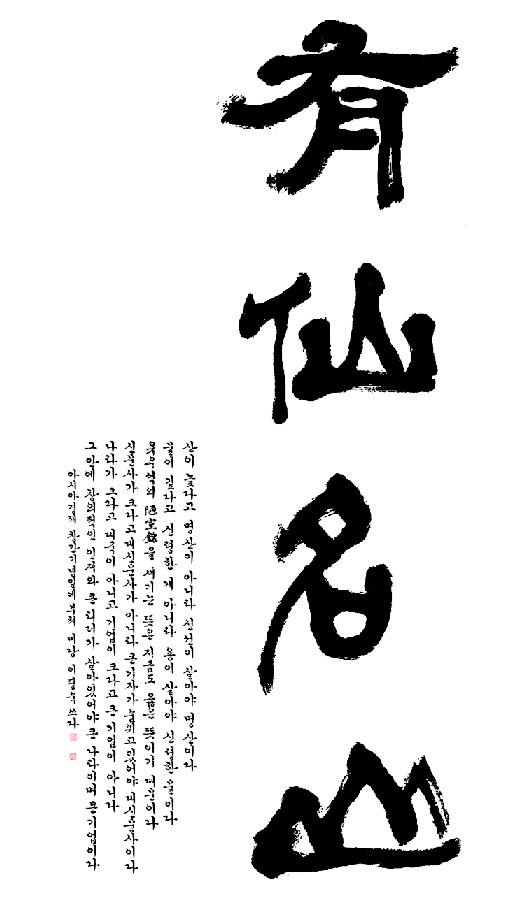 有仙名山
산이 높다고 명산이 아니라 신선이 살아야 명산이다
물이 깊다고 신령한 게 아니라 용이 살아야 신령한 물이다
陋室銘을 새기는 뜻은 지금도 옳은 뜻이기 때문이다
신문사가 크다고 대신문사가 아니라 큰 기자가 숨쉬고 있어야 대신문사이다
나라가 크다고 대국이 아니고 기업이 크다고 큰 기업이 아니다
그 안에 창의적인 인재와 큰 리더가 살아있어야 큰 나라이며 큰 기업이다
아시아경제 창간 기념일에 부쳐 이 쓰다